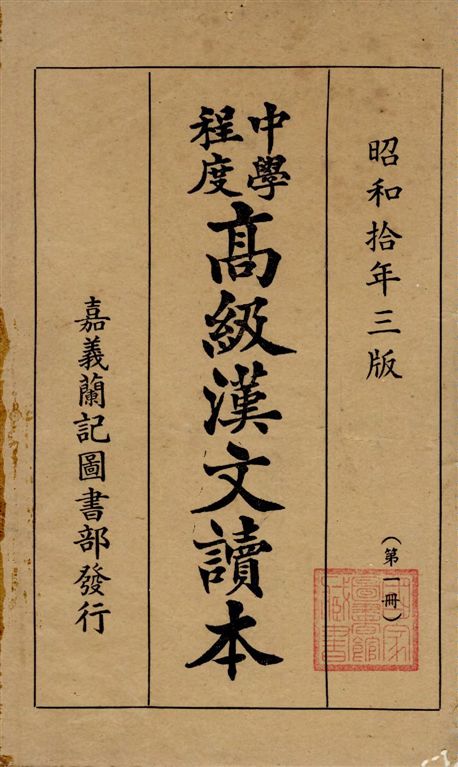 昭和拾年三版
（第一冊）
中學
程度
高級漢文讀本
嘉義蘭記圖書部發行
國家
圖書館
藏書